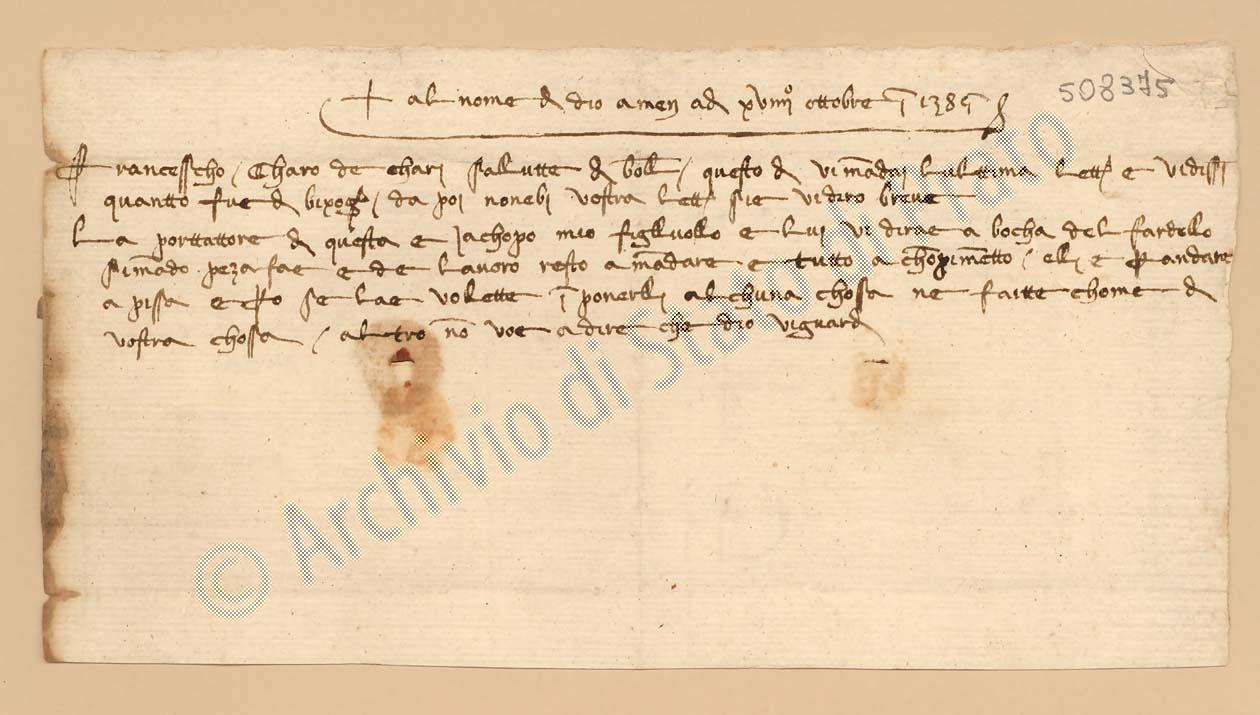 + al nome d dio amen ad xviiiiº ottobre ī 1385
508375
Francesscho / Charo de chari sallutte d boll / questo d vi mādai l ultima lett e vidissi
quantto fue d bixog / da poi nonebi vostra lett sie vi diro breve
La porttattore d questa e Jachopo mio figlluollo e lui vi dirae a bocha del fardello
si mādo peza fae e de lavoro resto a mādare e tutto a chōpimētto / eli e p andare
a pissa e po se lae volette ī ponerlli alchuna chossa ne faitte chome d
vostra chossa / altro nō voe a dire che dio vi guard
© Archivio di Stato di Prato